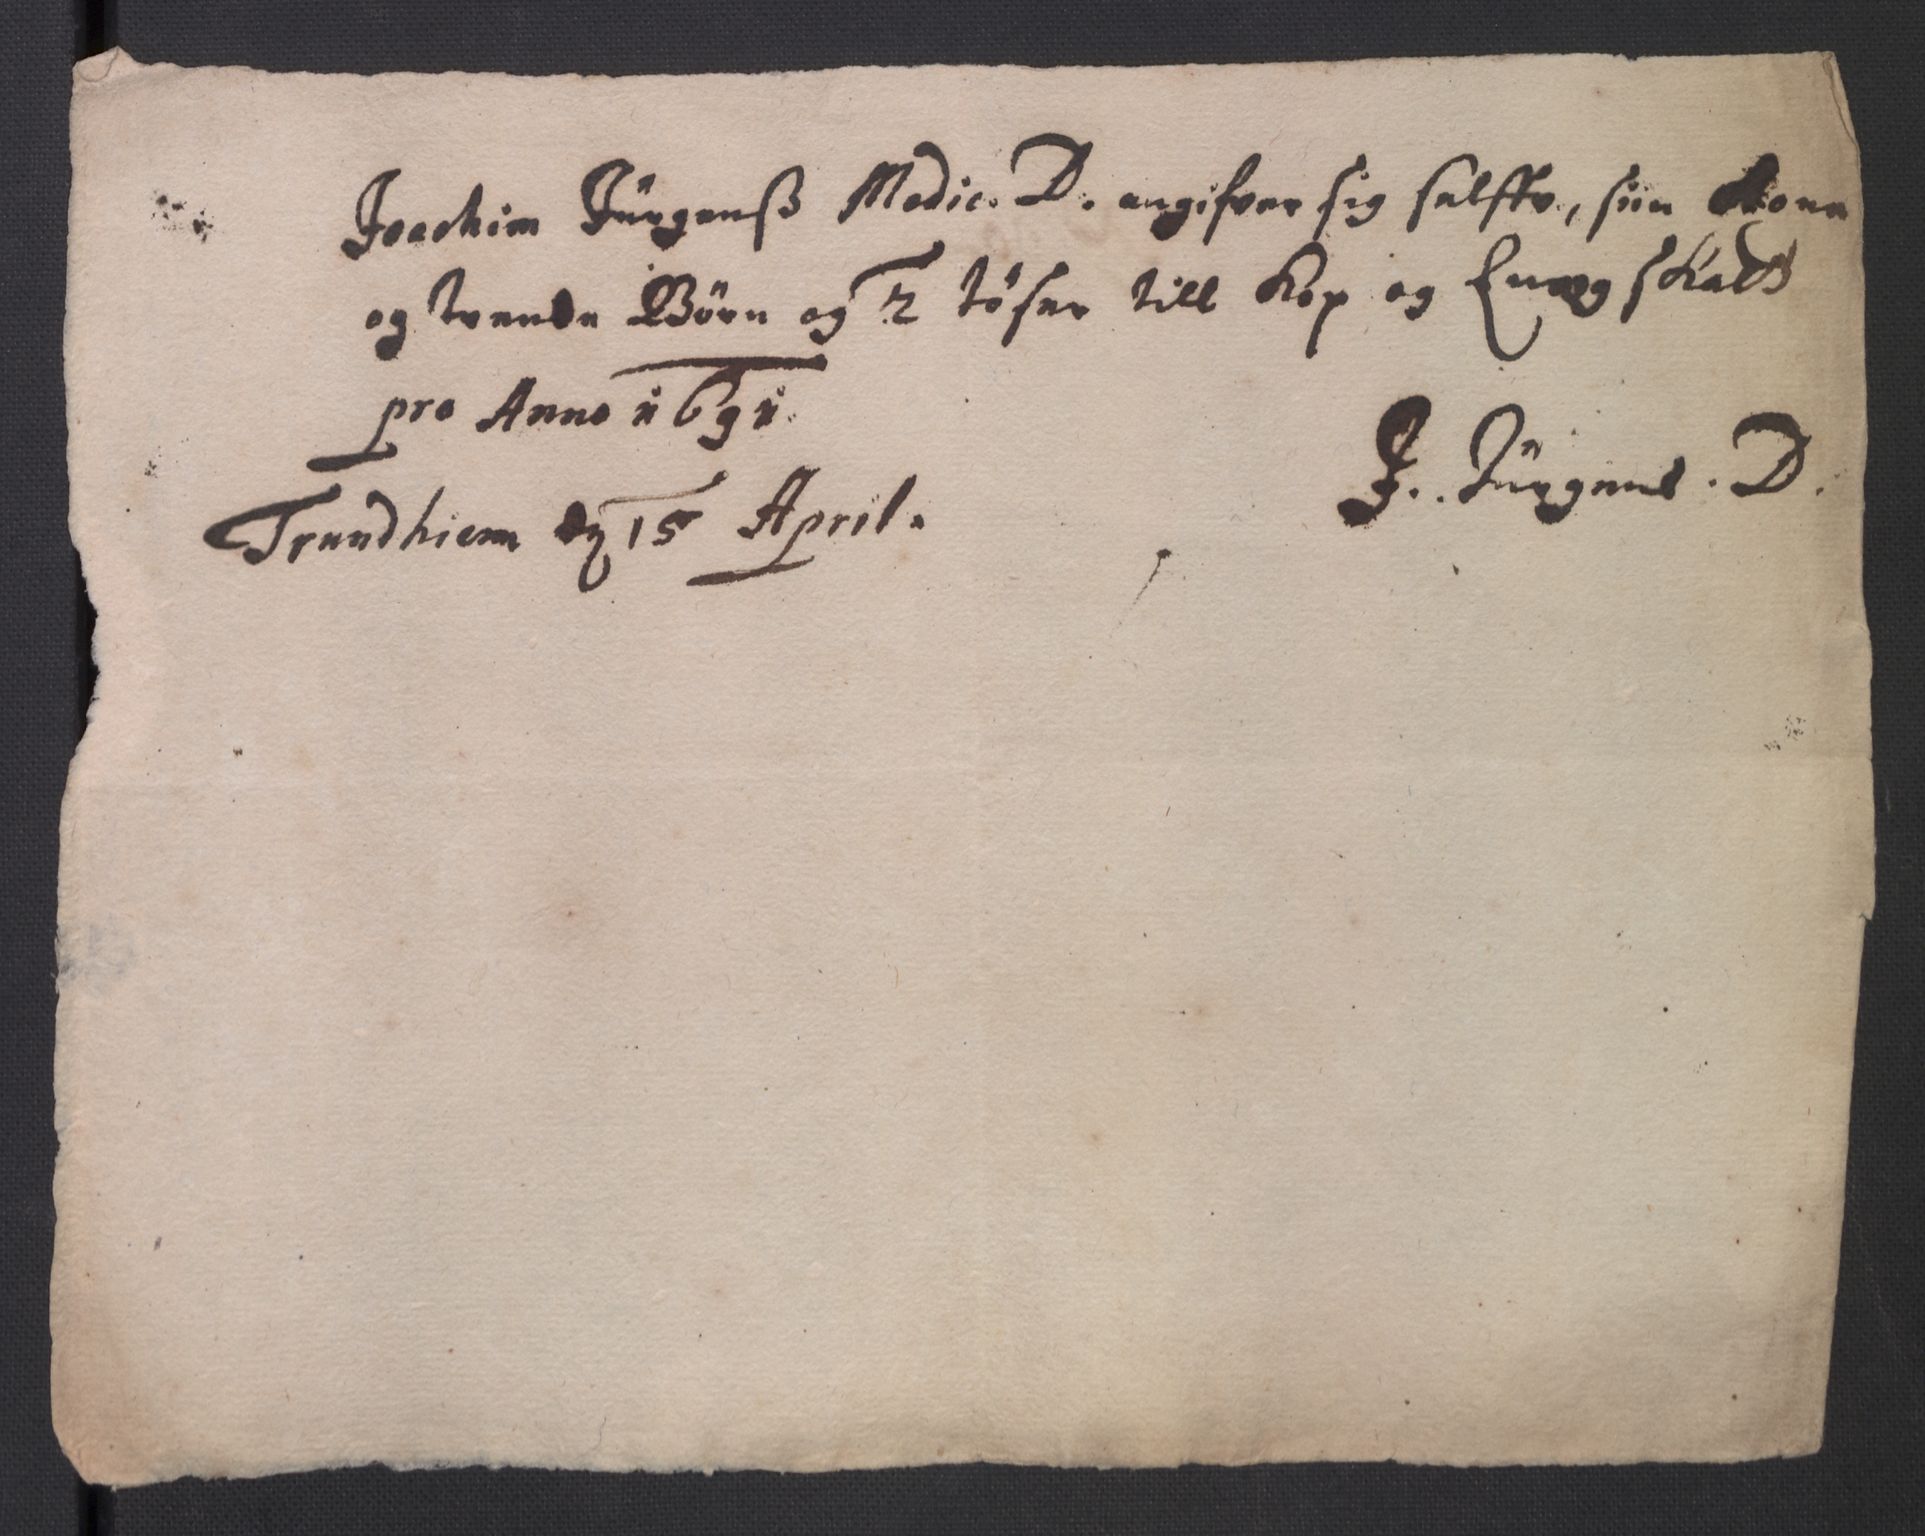 Joachim Jürgenß Medic. D. angifver sig sielffv, sin Kone
og trende Börn og 2 töser till Kop og Qvægskatt
pro Anno 1691.
J. Jürgens. D.
Trundhiem dȳ 15 April.